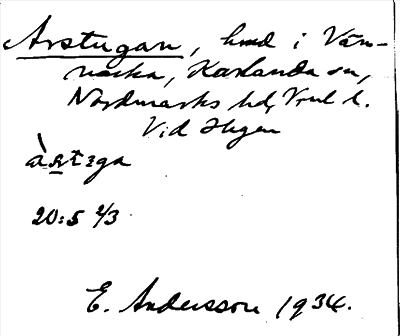 Arstugan, hmd i Vän-
nacka, Karlanda sn,
Nordmarks hd, Vrml l.
Vid Hugn
àrstʒga
20:5 2/3
E. Andersson 1934.